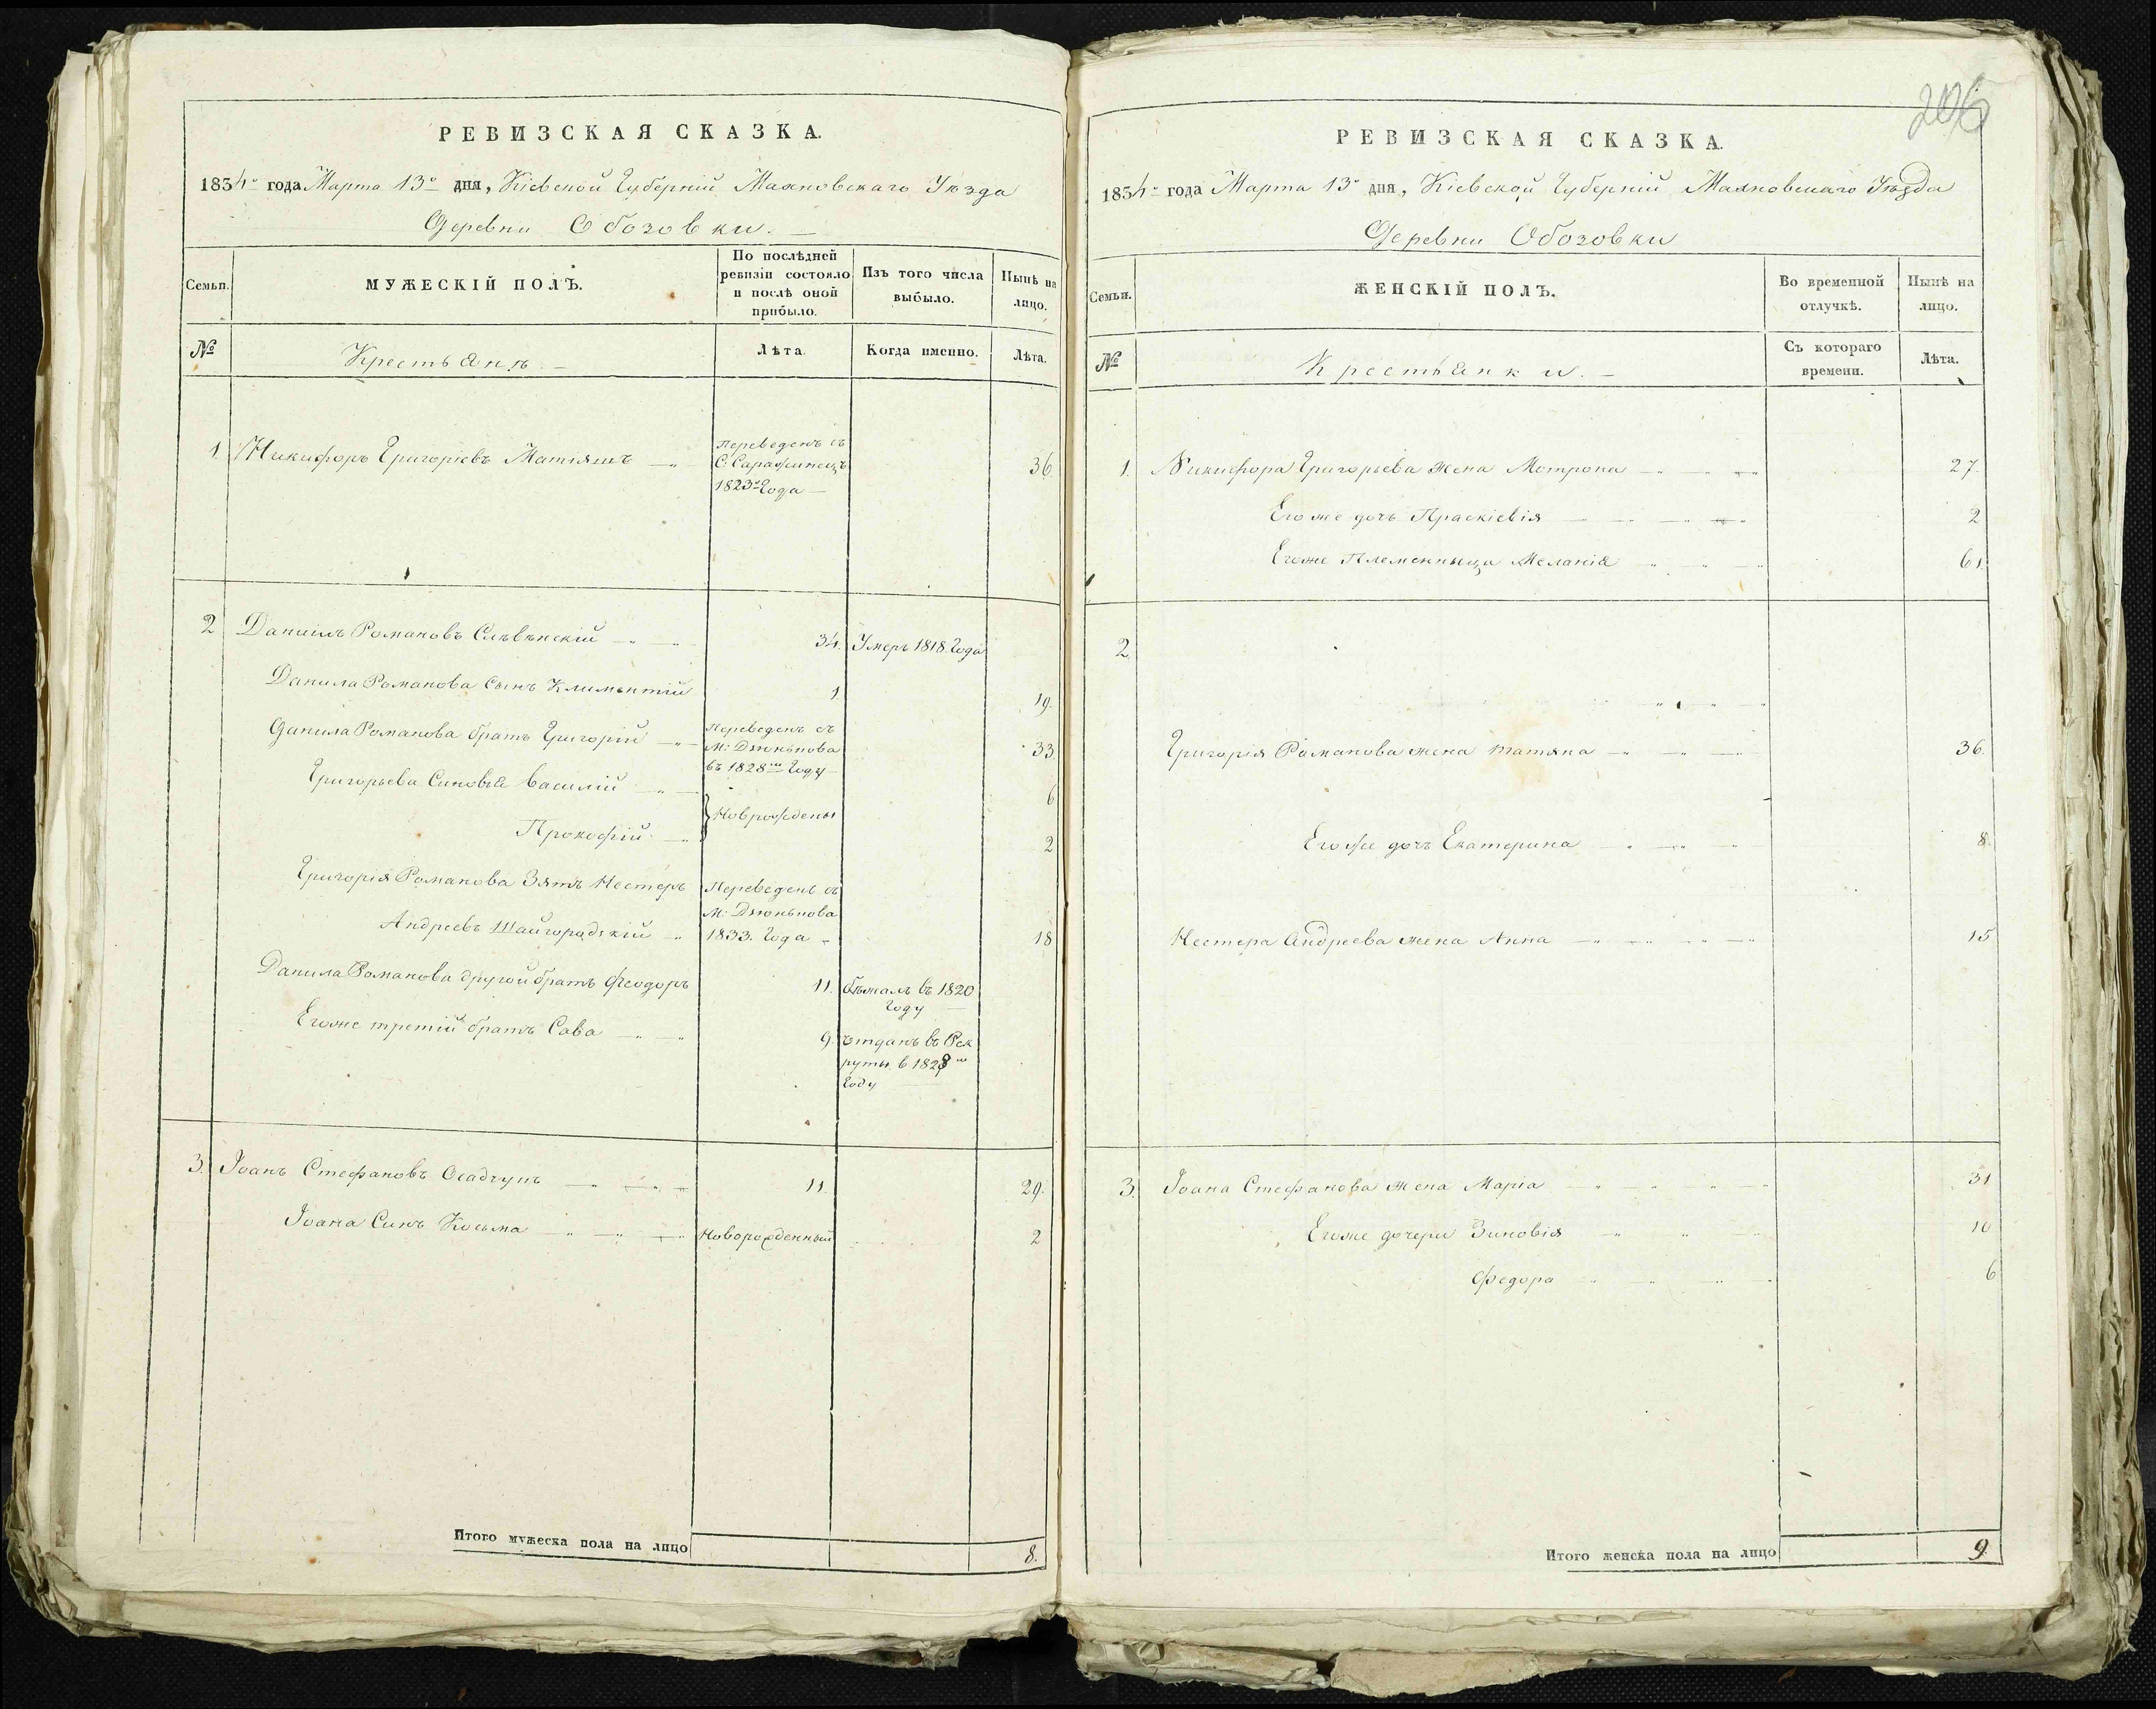 РЕВИЗСКАЯ СКАЗКА.
1834го года Марта 13го дня, Кіевской Губерніи Махновскаго Уѣзда
Деревни Обозовки.
Семьи.
МУЖЕСКІЙ ПОЛЪ.
По послѣдней
ревизіи состояло
и послѣ оной
прибыло.
Изъ того числа
выбыло.
Нынѣ на
лицо.
№
Крестьянъ
Лѣта.
Когда именно.
Лѣта.
1 Никифоръ Григоріевъ Матяшъ
Переведенъ съ
С. Саражинецъ
1823го Года
36.
2 Даниилъ Романовъ
34. Умеръ 1818. Года
Данила Романова сынъ Климентій 1. 19.
Данила Романова братъ Григорій
Переведенъ съ
М: Дзюнькова
въ 1828мъ Году
33.
Григорьева Синовья Василій 6
Новрождены
Прокофій 2
Григорія Романова Зять Нестеръ
Андреевъ Шайгородзкій
Переведенъ съ
М: Дзюнькова
1833. Года
18
Данила Романова другой братъ Феодоръ 11.
бѣжалъ въ 1820
Году
Егоже третій братъ Сава 9.
отданъ въ Рек
руты в 1828мъ
Году
3. Іоанъ Стефановъ Осадчукъ 11. 29.
Іоана Синъ Косьма Новорожденный 2
Итого мужеска пола на лицо 8.
206
РЕВИЗСКАЯ СКАЗКА.
1834го года Марта 13го дня, Кіевской Губерніи Махновскаго Уѣзда
Деревни Обозовки
Семьи.
ЖЕНСКІЙ ПОЛЪ.
Во временной
отлучкѣ.
Нынѣ на
лицо.
№
Крестьянки.
Съ котораго
времени.
Лѣта.
1. Никифора Григорьева жена Мотрона 27.
Егоже дочь Праскіевія 2
Егоже Племенныца Меланія 61.
2.
Григорія Романова жена татяна 36.
Егоже дочъ Екатерина 8.
Нестера Андреева жена Анна 15
3. Іоана Стефанова жена Марія 31
Егоже дочери Зиновія 10
Федора 6
Итого женска пола на лицо 9.